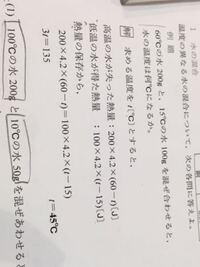 1 水の混合
温度の異なる水の混合について，次の各問に答えよ。
例題
60℃の水 200g と，15℃の水 100g を混ぜ合わせると，
水の温度は何℃になるか。
解 求める温度を t〔℃〕とすると，
高温の水が失った熱量：200×4.2×(60−t)〔J〕
低温の水が得た熱量：100×4.2×(t−15)〔J〕
熱量の保存から，
200×4.2×(60−t)＝100×4.2×(t−15)
3t＝135
t＝45℃
(1) 100℃の水 200g と 10℃の水 50g を混ぜあわせると